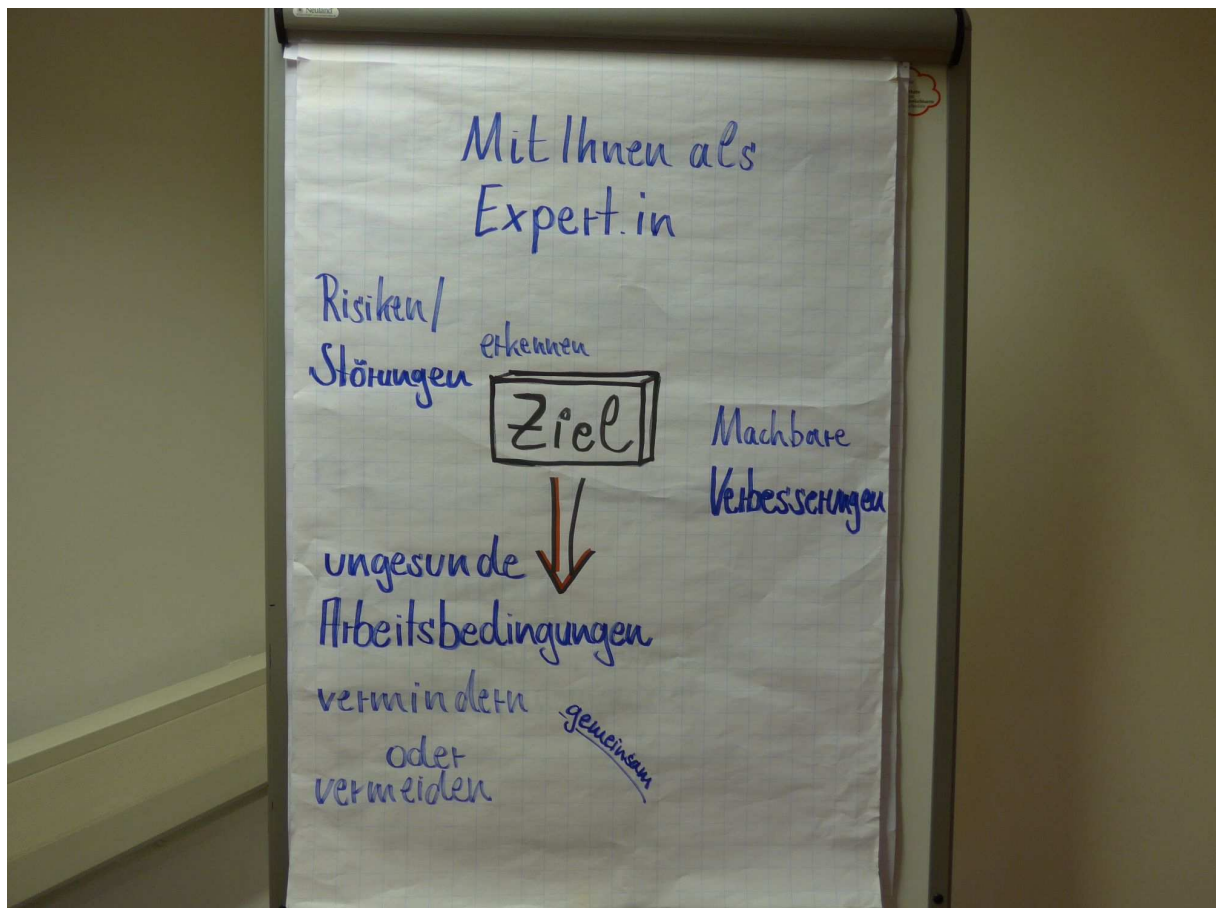 Neuland
Mit Ihnen als
Expert.in
Risiken/
Störungen
erkennen
Ziel
Machbare
Verbesserungen
ungesunde
Arbeitsbedingungen
vermindern
oder
vermeiden
gemeinsam